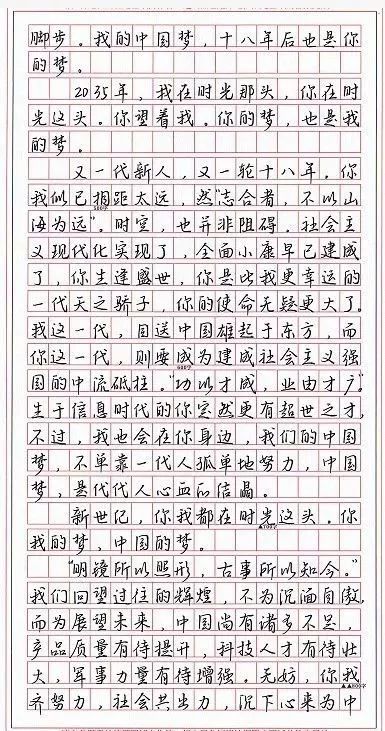 脚步。我的中国梦，十八年后也是你
的梦。
2035年，我在时光那头，你在时
光这头。你望着我。你的梦，也是我
的梦。
又一代新人，又一轮十八年。你
我似已相距太远，然“志合者，不以山
海为远”。时空，也并非阻碍。社会主
义现代化实现了，全面小康早已建成
了，你生逢盛世，你是比我更幸运的
一代天之骄子，你的使命无疑更大了。
我这一代，目送中国雄起于东方，而
你这一代，则要成为建成社会主义强
600字
国的中流砥柱。“功以才成，业由才广。”
生于信息时代的你定然更有超世之才，
不过，我也会在你身边，我们的中国
梦，不单靠一代人孤单地努力，中国
梦，是代代人心血的结晶。
新世纪，你我都在时光这头。你
我的梦，中国的梦。
“明镜所以照形，古事所以知今。”
我们回望过往的辉煌，不为沉湎自傲，
而为展望未来，中国尚有诸多不足，
产品质量有待提升，科技人才有待壮
大，军事力量有待增强。无妨，你我
▲▲800字
齐努力，社会共出力，沉下心来为中